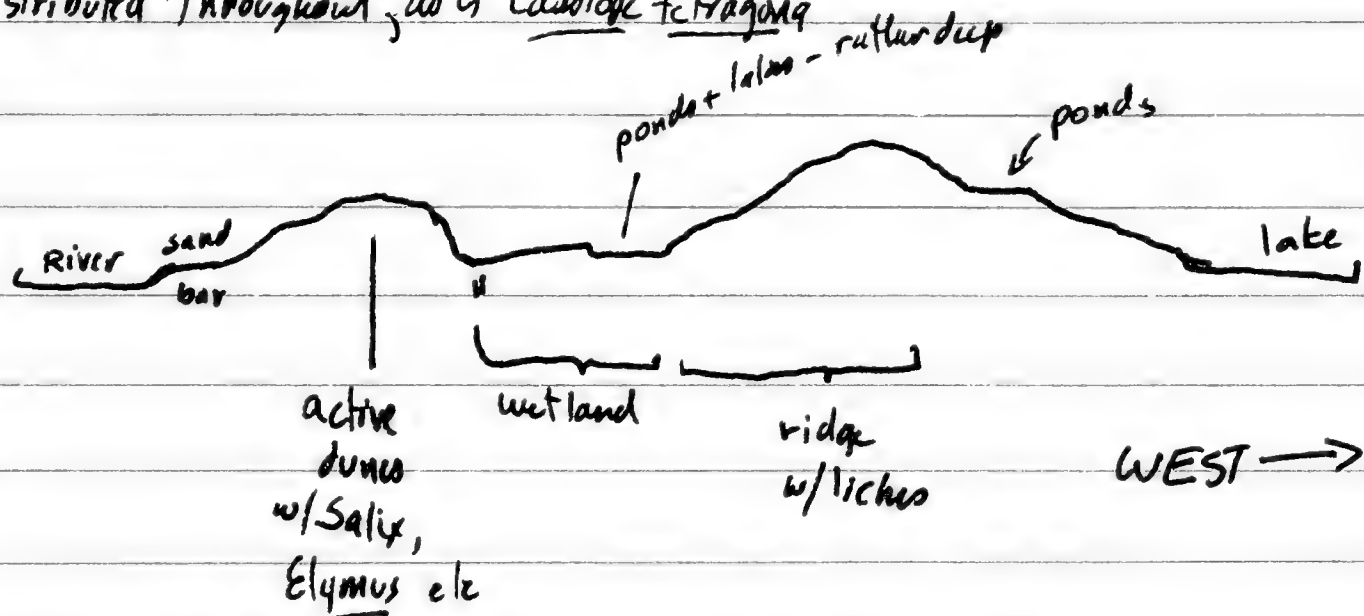 stributed throughout, as is Cassiope tetragona
ponds + lakes - rather deep
ponds
River
sand
bar
lake
active
dunes
w/Salix,
Elymus etc
wetland
ridge
w/lichens
WEST